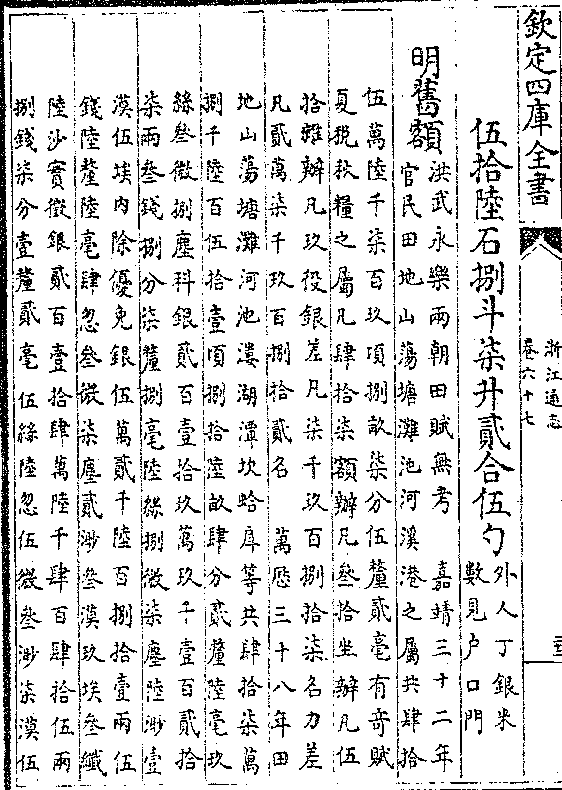 欽定四庫全書
浙江通志
卷六十七
伍拾陸石捌斗柒升貳合伍勺
外人丁銀米
數見户口門
明舊額
洪武永樂兩朝田賦無考　嘉靖三十二年
官民田地山蕩塘灘池河溪港之屬共肆拾
伍萬陸千柒百玖頃捌畝柒分伍釐貳毫有奇賦
夏税秋糧之屬凡肆拾柒額辦凡叁拾坐辦凡伍
拾雜辦凡玖役銀差凡柒千玖百捌拾柒名力差
凡貳萬柒千玖百捌拾貳名　萬厯三十八年田
地山蕩塘灘河池漊湖潭坎蛤厙等共肆拾柒萬
捌千陸百伍拾壹頃捌拾陸畝肆分貳釐陸毫玖
絲叁微捌塵科銀貳百壹拾玖萬玖千壹百貳拾
柒兩叁錢捌分柒釐捌毫陸絲捌微柒塵陸渺壹
漠伍埃内除優免銀伍萬貳千陸百捌拾壹兩伍
錢陸釐陸毫肆忽叁微柒塵貳渺叁漠玖埃叁纖
陸沙實徵銀貳百壹拾肆萬陸千肆百肆拾伍兩
捌錢柒分壹釐貳毫伍絲陸忽伍微叁渺柒漠伍